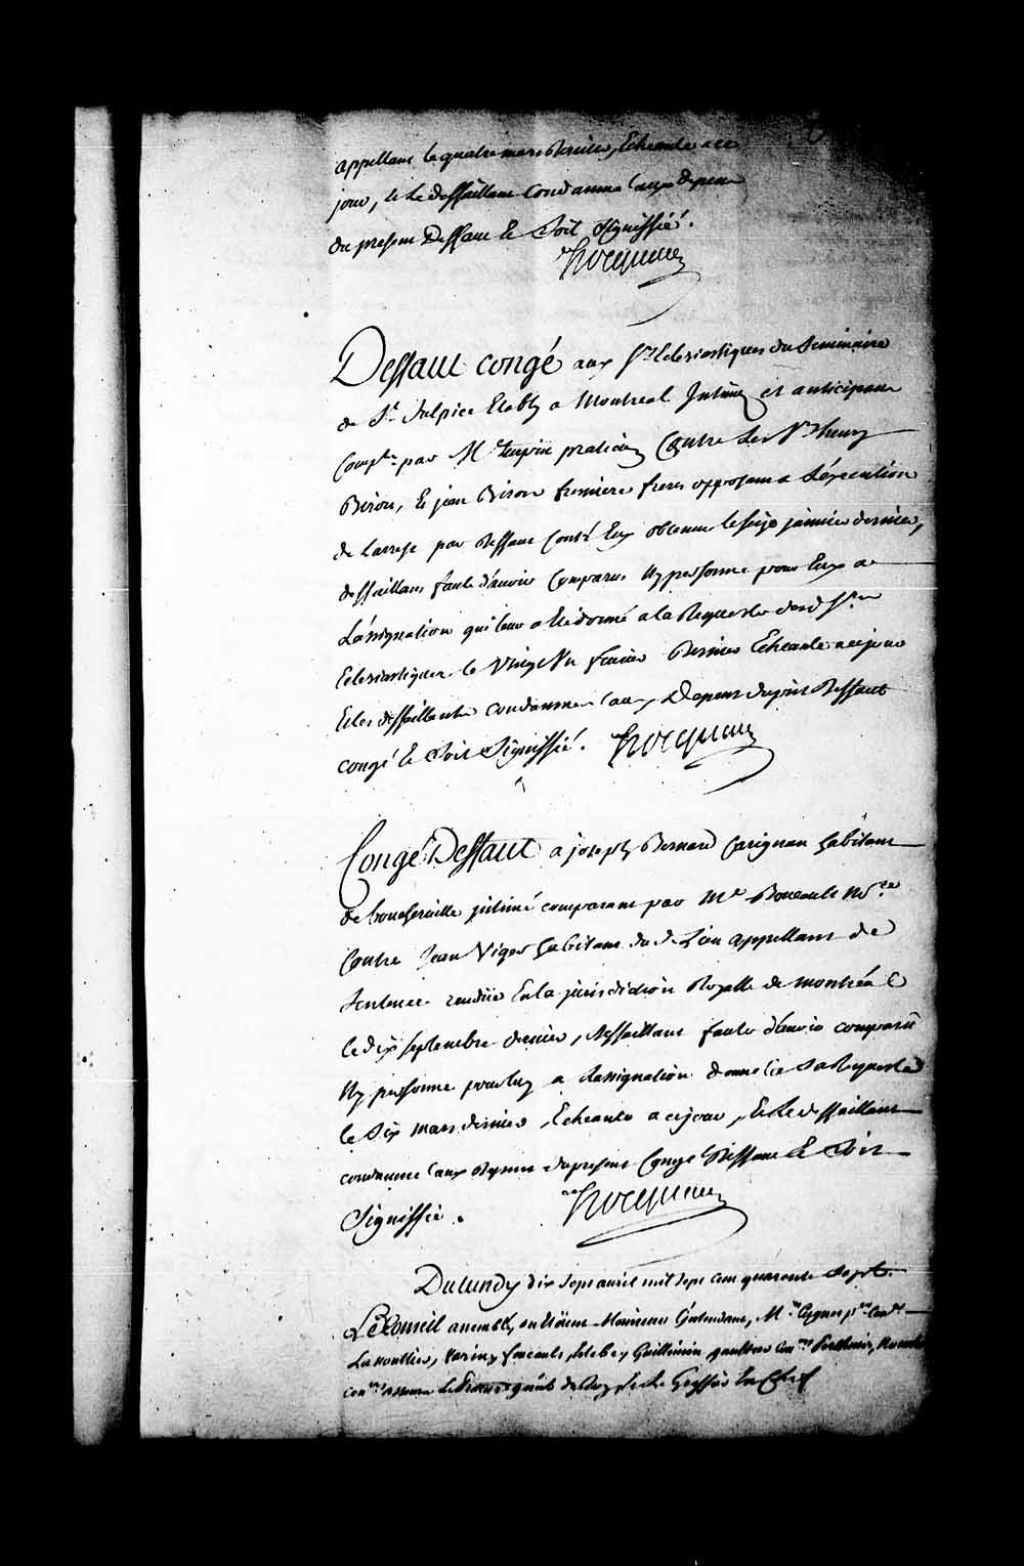 appellant le quatre mars dernier, Echeante a ce
jour, et le deffaillant Condamné aux depens
du present Deffaut et Soit Signiffié.
hocquart
Deffaut congé aux Srs Eclesiastiques du Seminaire
de St. Sulpice Etably a Montreal Intimez et anticipans
Comp.ns par Me praticien Contre Les Srs henry
Biron, et jean Biron freres opposans a L'éxecution
de Larrest par deffaut Contr'Eux obtenu le seize janvier dernier,
deffaillans faute d'avoir Comparu Ny personne pour Eux a
L'assignation qui leur a Eté donné a la Requeste desd. Srs
Eclesiastiques le Vingt Un fevrier Dernier Echeante a ce jour
Et les deffaillants condamnez aux Depens du p'nt Deffaut
congé et Soit Signiffié. hocquart
Congé Deffaut a joseph Bernard Carignan habitant
de boucherville jntimé comparant par Me Boucault No.re
Contre Jean Viger habitant du d. Lieu appellant de
Sentence rendüe En la jurisdidion Royalle de montréal
le dix septembre dernier, deffaillant faute d'avoir comparu
Ny personne pour luy a Lassignation donnée a sa Requeste
le Six mars dernier, Echeante a ce jour, Et Le deffaillant
condamné aux depens du present Congé Deffaut et Soit
Signiffié. hocquart
Du Lundy dix Sept avril mil Sept cent quarante Sept.
Le Conseil assemblé, ou Etoient Monsieur L'intendant, Mrs Cugnet pr. Cons.er
Lanoullier, Varin, foucault, Guillimin gaultier Cons.rs
Con.rs Le Procureur général du Roy, et Le Greffier En Chef